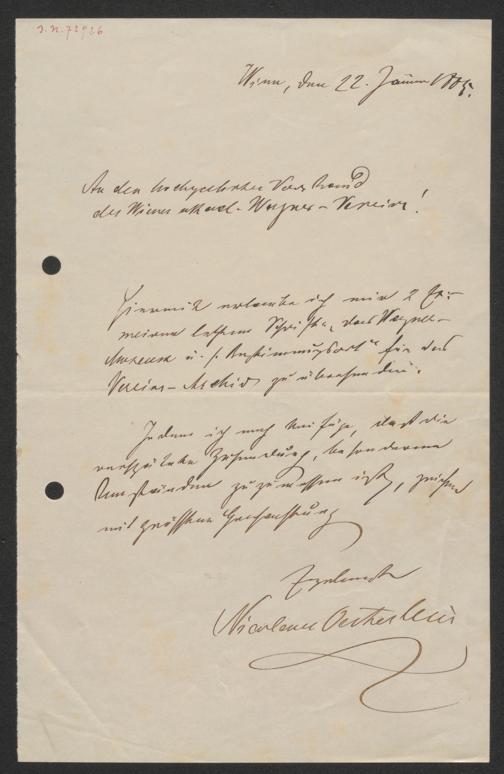 J.N. 72926
Wien, den 22. Jänner 1885.
An den hochgeehrten Vorstand
des Wiener akad. Wagner-Vereins!
Hiermit erlaube ich mir 2 Ex.
meiner letzten Schrift „das Wagner-
Museum u. s. Bestimmungsort“ für das
Vereins-Archiv zu übersenden.
Indem ich noch beifüge, daß die
verspätete Zusendung, besonderen
Umständen zuzumessen ist, zeichne
mit größter Hochachtung
Ergebenster
Nicolaus Oesterlein